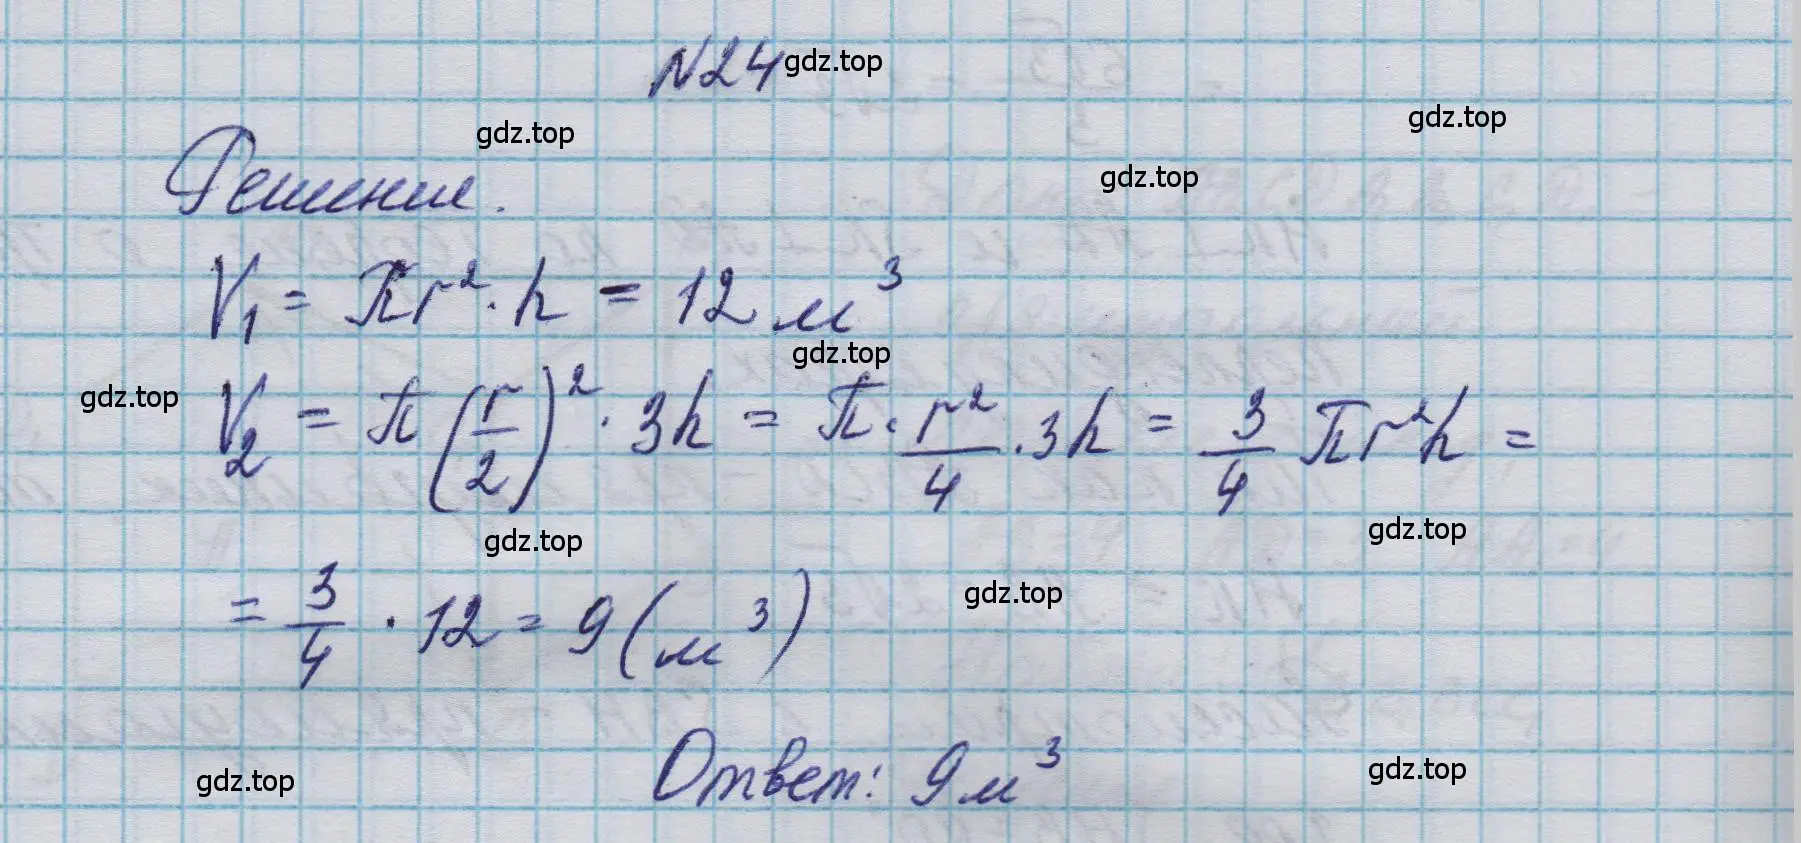 №24 gdz.top
gdz.top
gdz.top
gdz.top
Решение.
V₁ = πr² · h = 12 м³
gdz.top
gdz.top
V₂ = π(r/2)² · 3h = π · r²/4 · 3h = 3/4 πr²h =
gdz.top
gdz.top
= 3/4 · 12 = 9 (м³)
gdz.top
Ответ: 9 м³
gdz.top
gdz.top